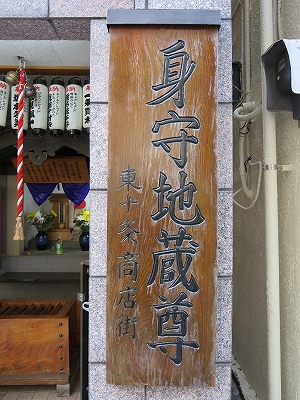 身守地蔵尊
東十条商店街